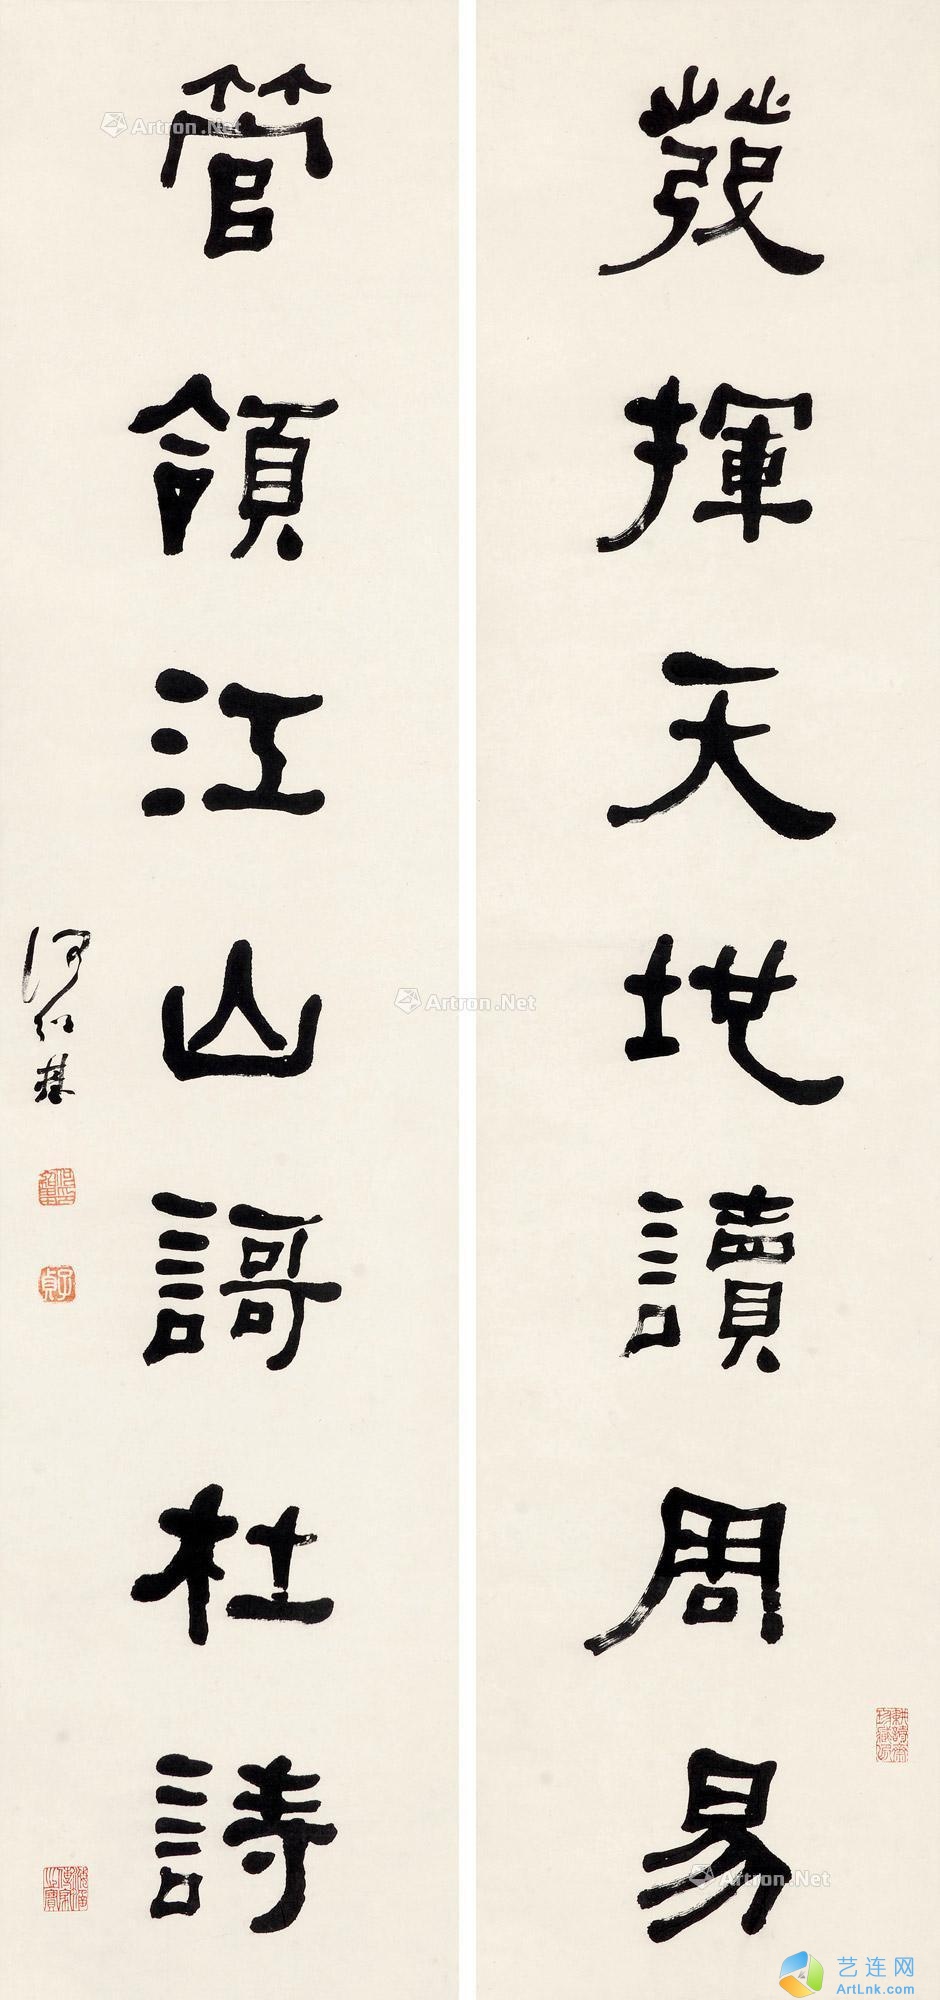 發揮天地讀周易
管領江山謌杜詩
何紹基
子貞
Artron.Net
Artron.Net
Artron.Net
艺连网
ArtLnk.com